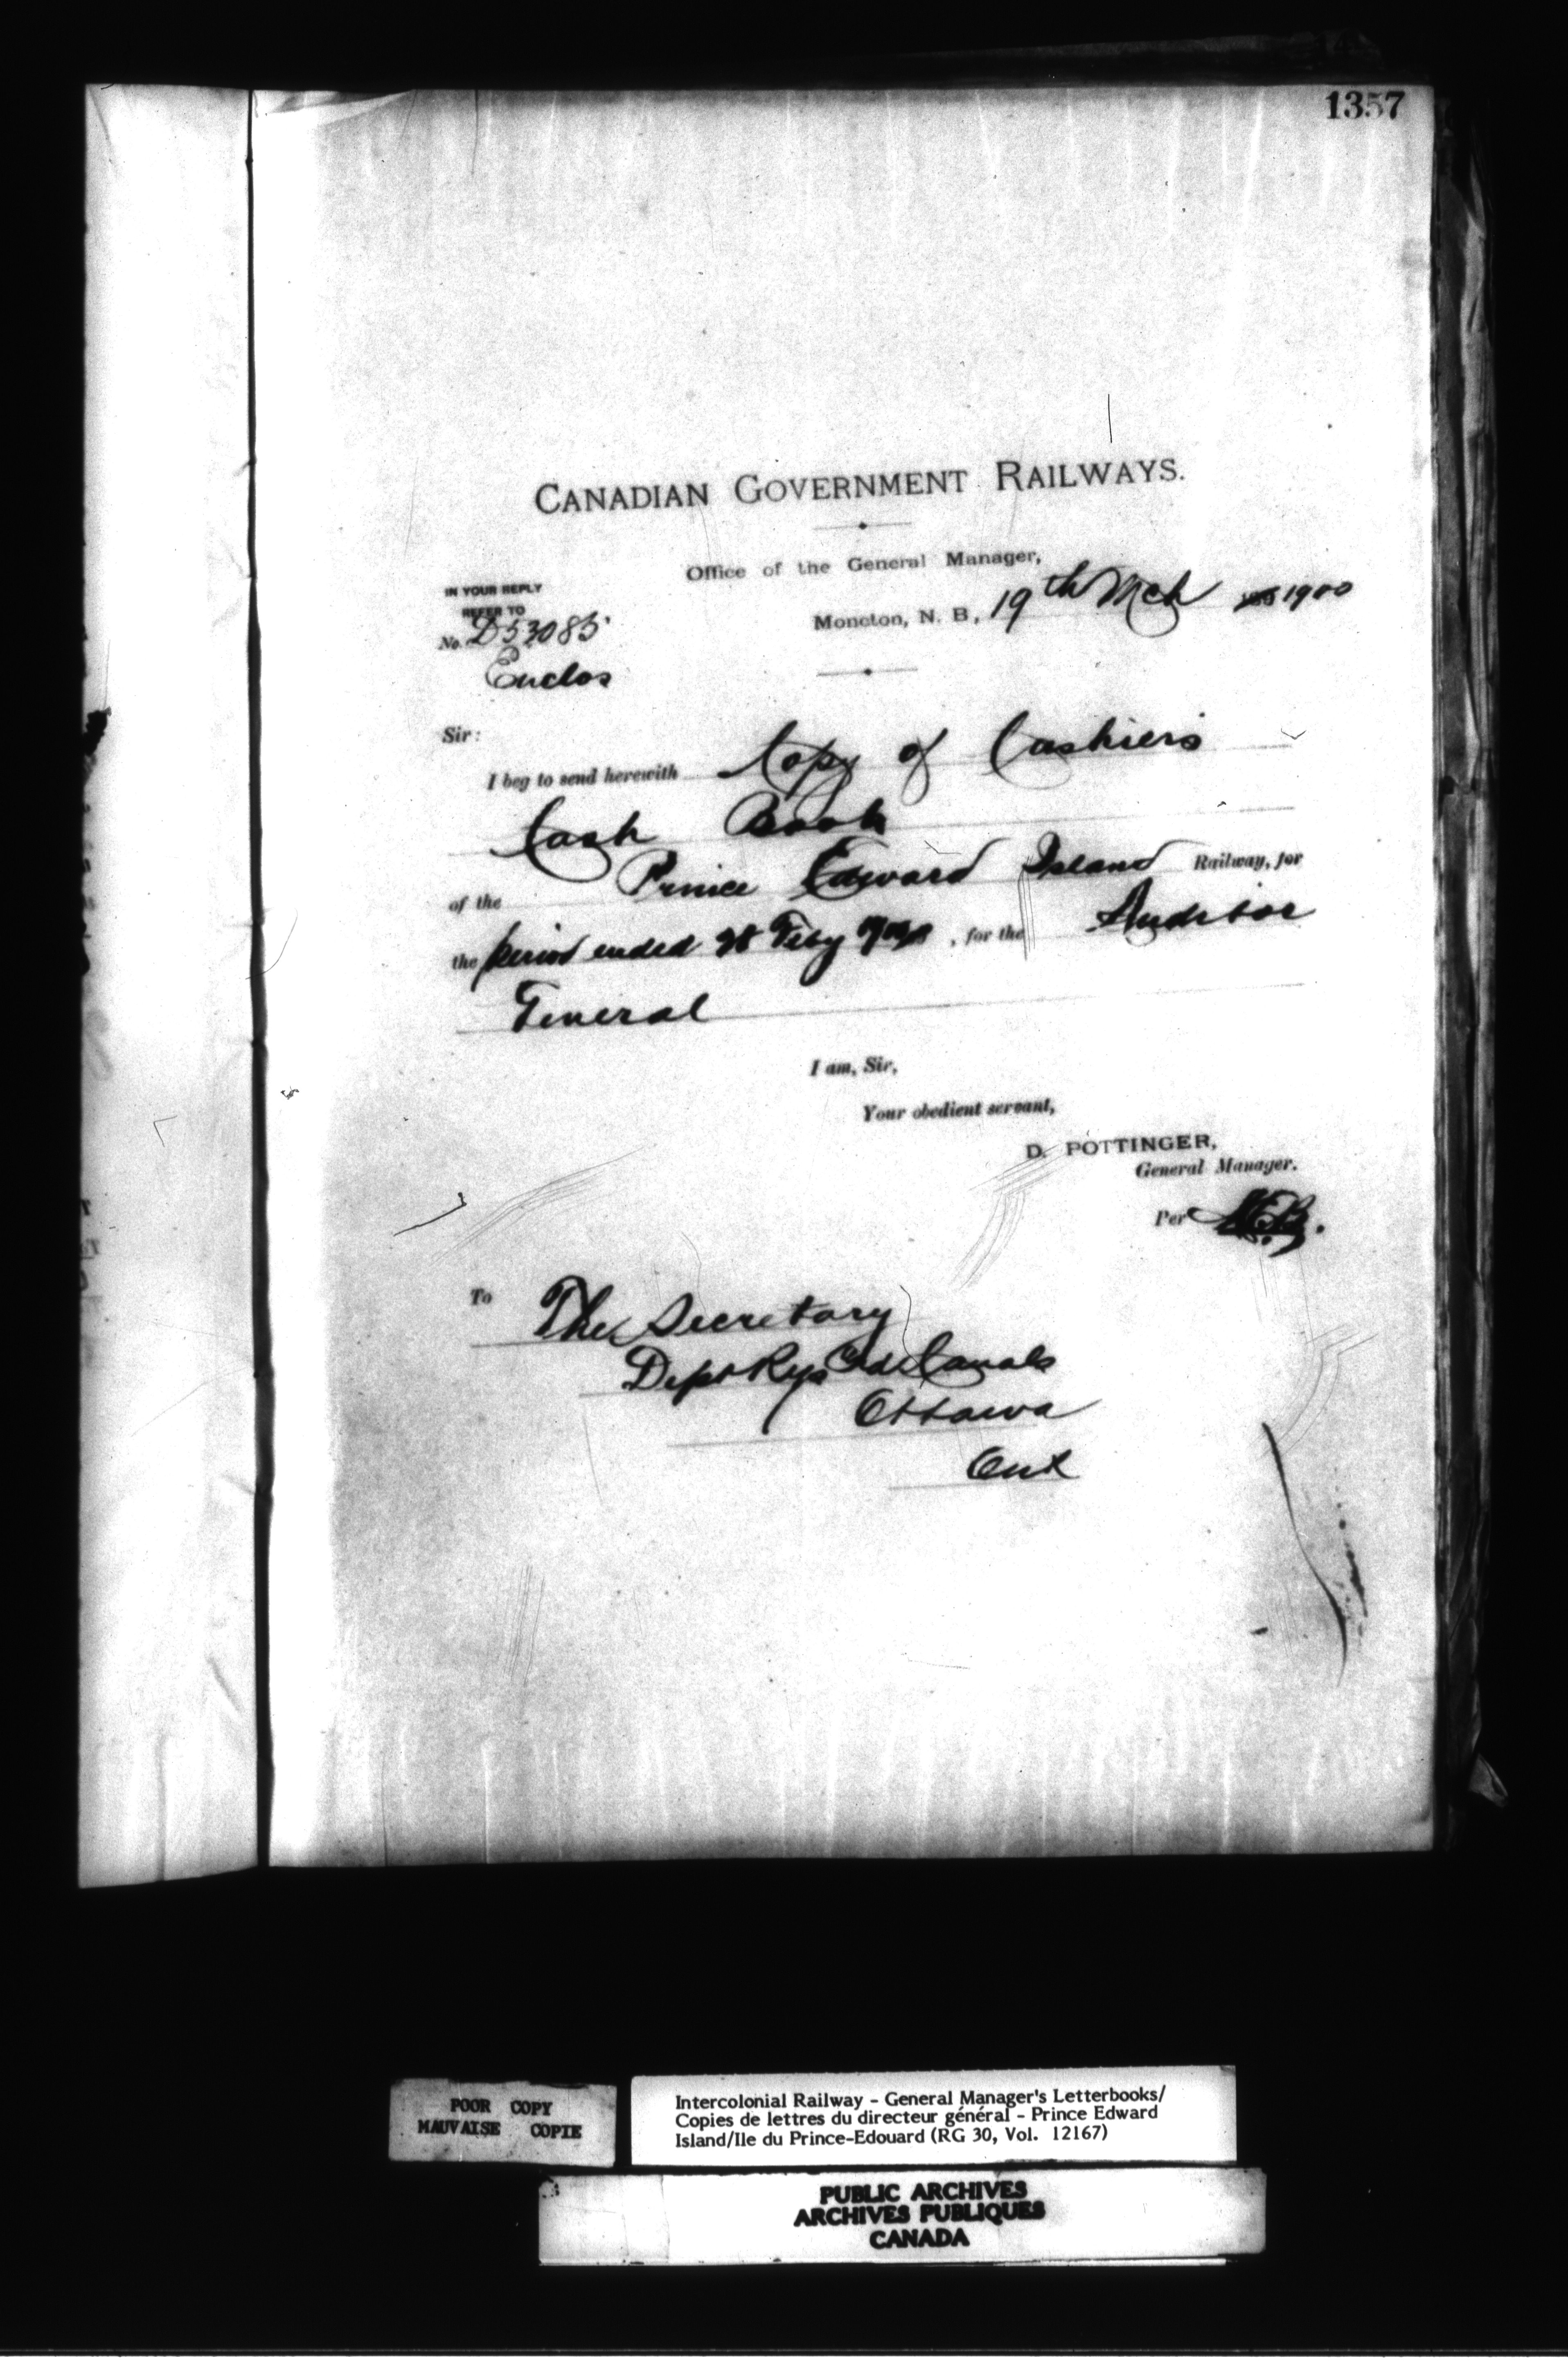 1357
CANADIAN GOVERNMENT RAILWAYS.
Office of the General Manager,
IN YOUR REPLY
REFER TO
Moncton, N. B, 19th Mch 1900
No. D53085
Enclos
Sir:
I beg to send herewith Copy of Cashiers
Cash Book
of the Prince Edward Island Railway, for
the period ended 28 Feby, for the Auditor
General
I am, Sir,
Your obedient servant,
D. POTTINGER,
General Manager.
Per
To The Secretary
Dept Rys and Canals
Ottawa
Ont
POOR COPY
MAUVAISE COPIE
Intercolonial Railway - General Manager's Letterbooks/
Copies de lettres du directeur général - Prince Edward
Island/Ile du Prince-Edouard (RG 30, Vol. 12167)
PUBLIC ARCHIVES
ARCHIVES PUBLIQUES
CANADA